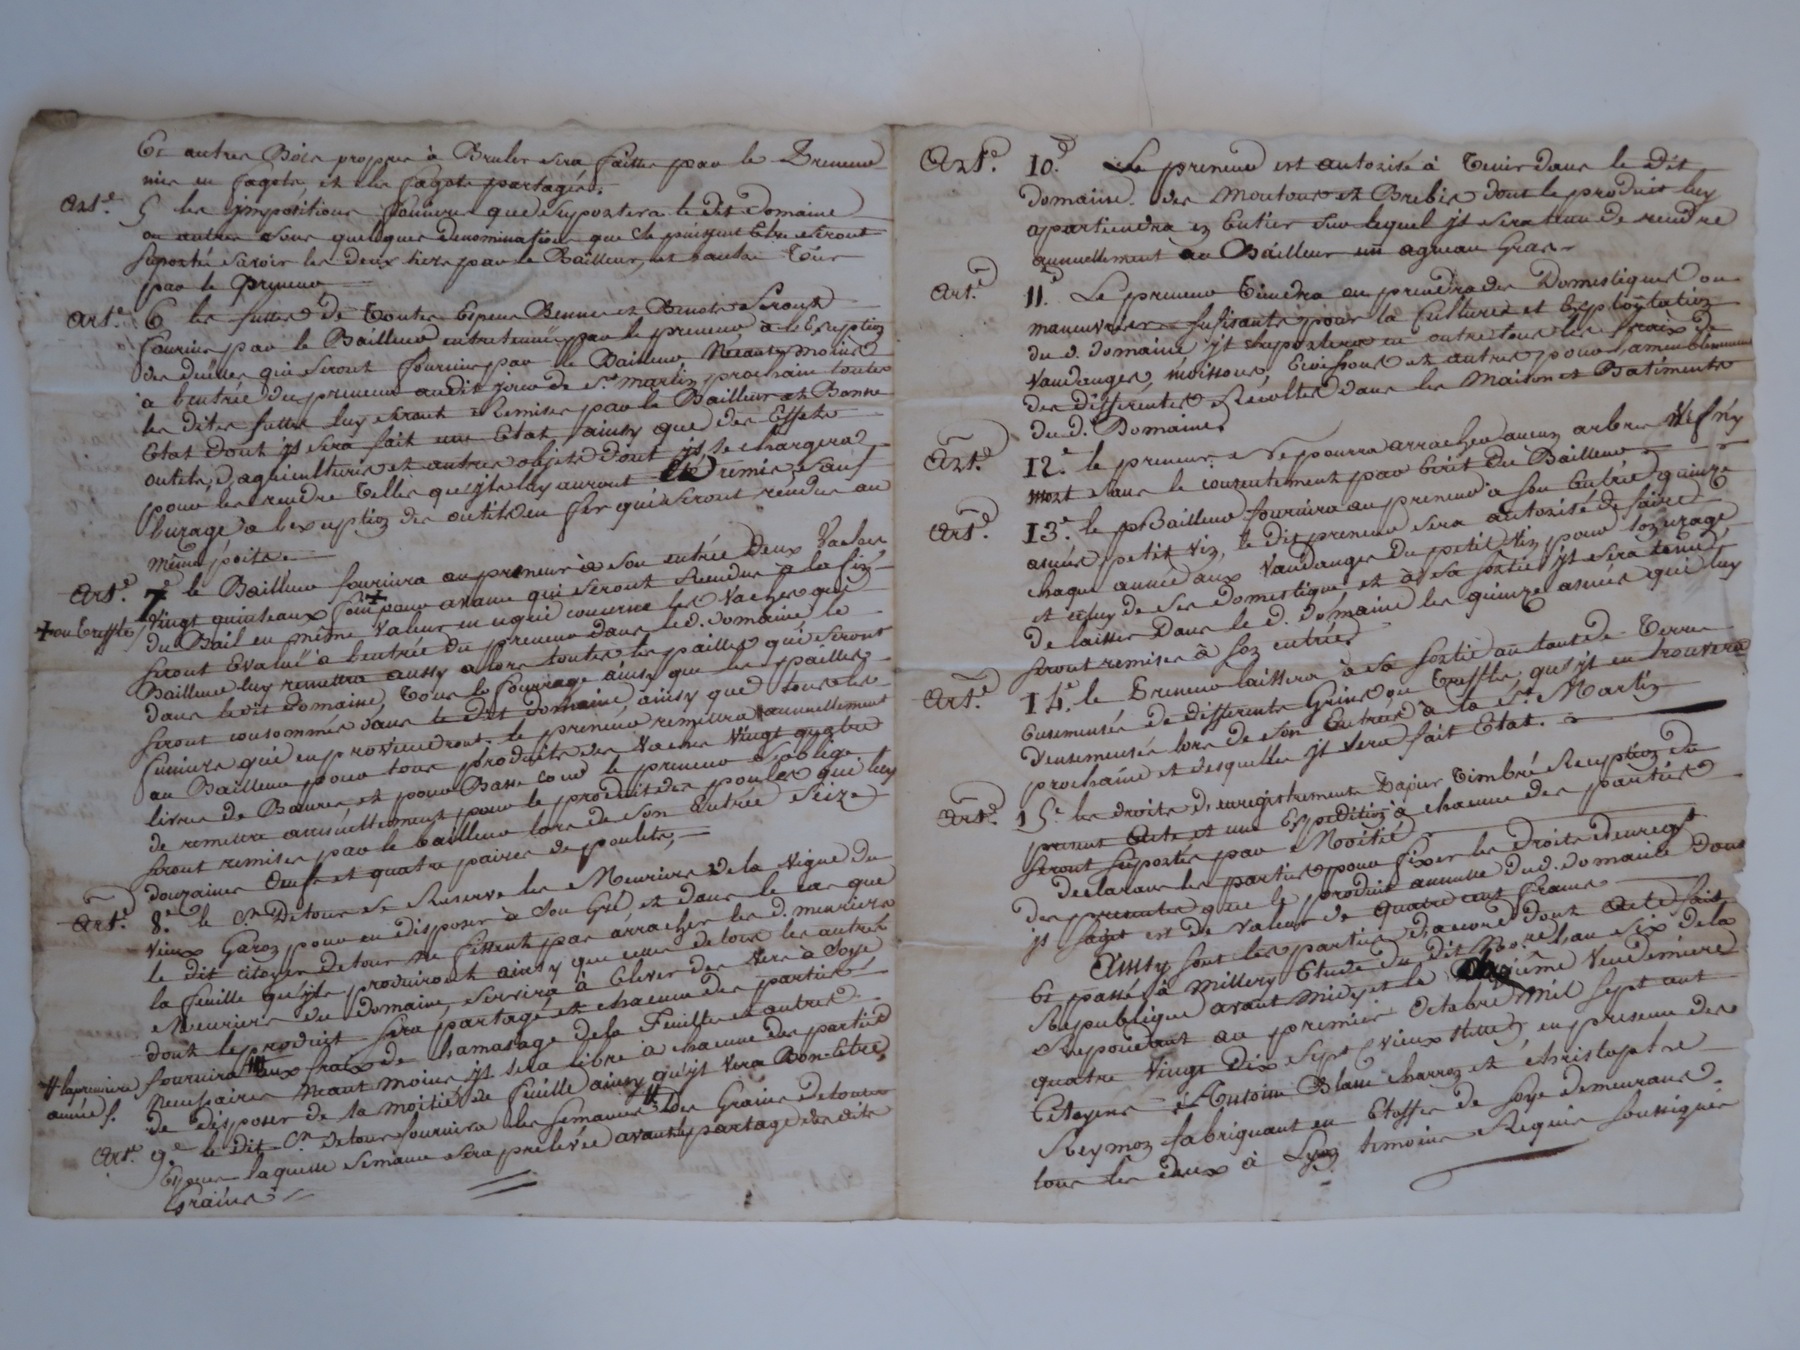 Et autres Bois propres à Bruler sera faitte par le Preneur
mis en fagots, et les fagots partagés.
Art.e 5 les impositions foncieres que suportera le dit Domaine
ou autres sous quelques denominations que ce puissent Etre seront
suporté savoir les deux tiers par le Bailleur, et l'autre Tiers
par le Preneur
Art.e 6 les futtes de Toutes Especes Bennes et Benots seront
fournies par le Bailleur entretenues par le preneur à l'Exeption
des qui seront fournies par le Bailleur Neantmoins
a l'entrée du preneur audit jour de St. martin prochain toutes
les dites futtes luy seront Remises par le Bailleur et Bonne
Etat dont jl sera fait une Etat, ainsy que des Effets
outils, d'agriculturs et autres objets dont jl se chargera,
pour les rendre Telles qu'jls luy auront été remis sauf
l'uzage a l'exeption des outils en fer qui seront rendus au
même poids.
Art.e 7.e le Bailleur fournira au preneur à son entrée Deux Vaches
+ ou treffle Vingt quinteaux foin + pour avance qui seront Rendus à la fin
du Bail en même valeur en ce qui concerne les Vaches qui
seront Evalué a l'entrée du preneur dans le d. domaine, le
Bailleur luy remettra aussy alors toutes les pailles qui seront
dans le dit domaine, Tous les fourrage ainsy que les pailles
seront consommés dans le dit domaine, ainsy que tous les
fumiers qui en proviendront, le preneur remettra annuellement
au Bailleur pour tous produits des Vaches Vingt quatre
livres de Beurre, et pour Basse cour le preneur s'oblige
de remettre annuellement pour le produit des poules qui luy
seront remises par le bailleur lors de son Entrée Seize
douzaines Oeufs et quatre paires de poulets,
Art.e 8.e le Cn. Detour se Reserve les Meuriers de la Vigne du
Vieux Garoz pour en disposer à son Gré, et dans le cas que
le dit citoyen detour ne fissent pas arrâcher les d. meuriers
la feuille qu'jls produiront ainsy que celle de tous les autres
Meuriers du Domaine, servira à Elever des Vers à Soye
dont le produit sera partagé et chacune des parties
# la premiere fournira aux fraix de l'amassage de la Feuille et autres
année s. Necessaires Neant moins jl sera libre à chacune des parties
de disposer de la moitié de feuille ainsy qu'jl vera Bon-Etre
Art.e 9.e le dit Cn. detour fournira les semances # des Grains de toutes
Especes laquelle semance sera prelevée avant le partage des dits
Grains
Art.e 10.e Le preneur est autorisé à Tenir dans le dit
Domaine des Moutons et Brebis dont le produit luy
apartiendra en Entier sur lequel jl sera tenu de rendre
annuellement au Bailleur un agneau Gras
Art.e 11.e Le preneur Tiendra ou prendra des Domestiques ou
maneuvres sufisants pour la Culture et Exploytation
du d. domaine, jl suportera en outre tous les fraix de
Vandanges, moissons, Eoissons et autres pour l'ameublement
des differentes Recoltes dans les Maison et Batiments
du d. Domaine.
Art.e 12.e le preneur Ne pourra arracher aucun arbres Vif ny
mort sans le consentement par Ecrit du Bailleur
Art.e 13.e le Bailleur fournira au preneur à son Entrée quinze
anées petit Vin, le dit preneur sera autorisé de faire
chaque année aux Vandanges du petit Vin pour son uzage,
et celuy de ses domestique et à sa sortie jl sera tenu
de laisser dans le d. domaine les quinze anées qui luy
seront remises à son entrée.
Art.e 14.e le Preneur laissera à sa sortie autant de Terres
Ensemensée de differents Grains ou Treffle, qu'jl en trouvera
d'ensemensée lors de son Entrée à la St. Martin
prochaine et desquelles jl sera fait Etat.
Art.e 15.e les droits d'enregistrements Papier Timbré Reception du
present Acte et une Expedition à chacune des parties
seront suportés par Moitié
Declarant les parties pour fixer les Droits d'enregt.
des presentes que le produit annuel du d. domaine dont
jl s'agit est de Valeur de quatre cent francs
Ainsy sont les parties d'accord dont Acte fait
Et passé à Millery Etude du dit Nore. l'an six de la
Republique avant midy et le dixième Vendémiere
Repondant au premier Octobre mil sept cent
quatre Vingt Dix sept (Vieux stille) en presence des
Citoyens Antoine Blanc charron et christophe
Reymoz fabriquant en Etoffes de soye demeurans
tous les deux à Lyon temoins Requis soussignés